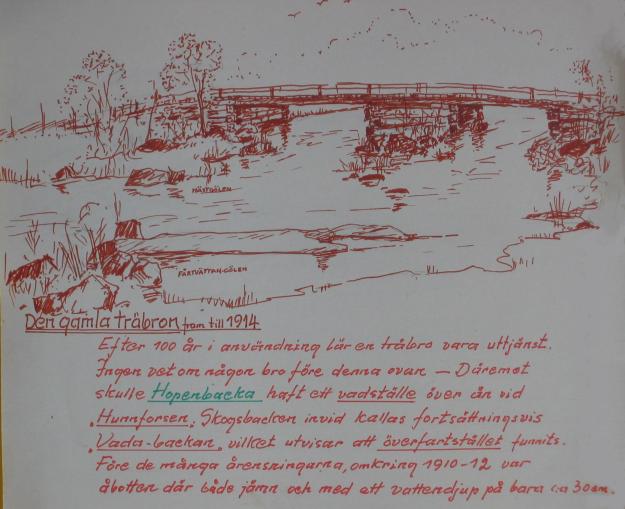 HÄSTGÖLEN
FÅRTVÄTTAN-GÖLEN
Den gamla träbron fram till 1914
Efter 100 år i användning lär en träbro vara uttjänst.
Ingen vet om någon bro före denna ovan — Däremot
skulle Hopenbacka haft ett vadställe över ån vid
"Hunnforsen". Skogsbacken invid kallas fortsättningsvis
"Vada-backan", vilket utvisar att överfartstället funnits.
Före de många årensningarna, omkring 1910-12 var
åbotten där både jämn och med ett vattendjup på bara c:a 30 cm.